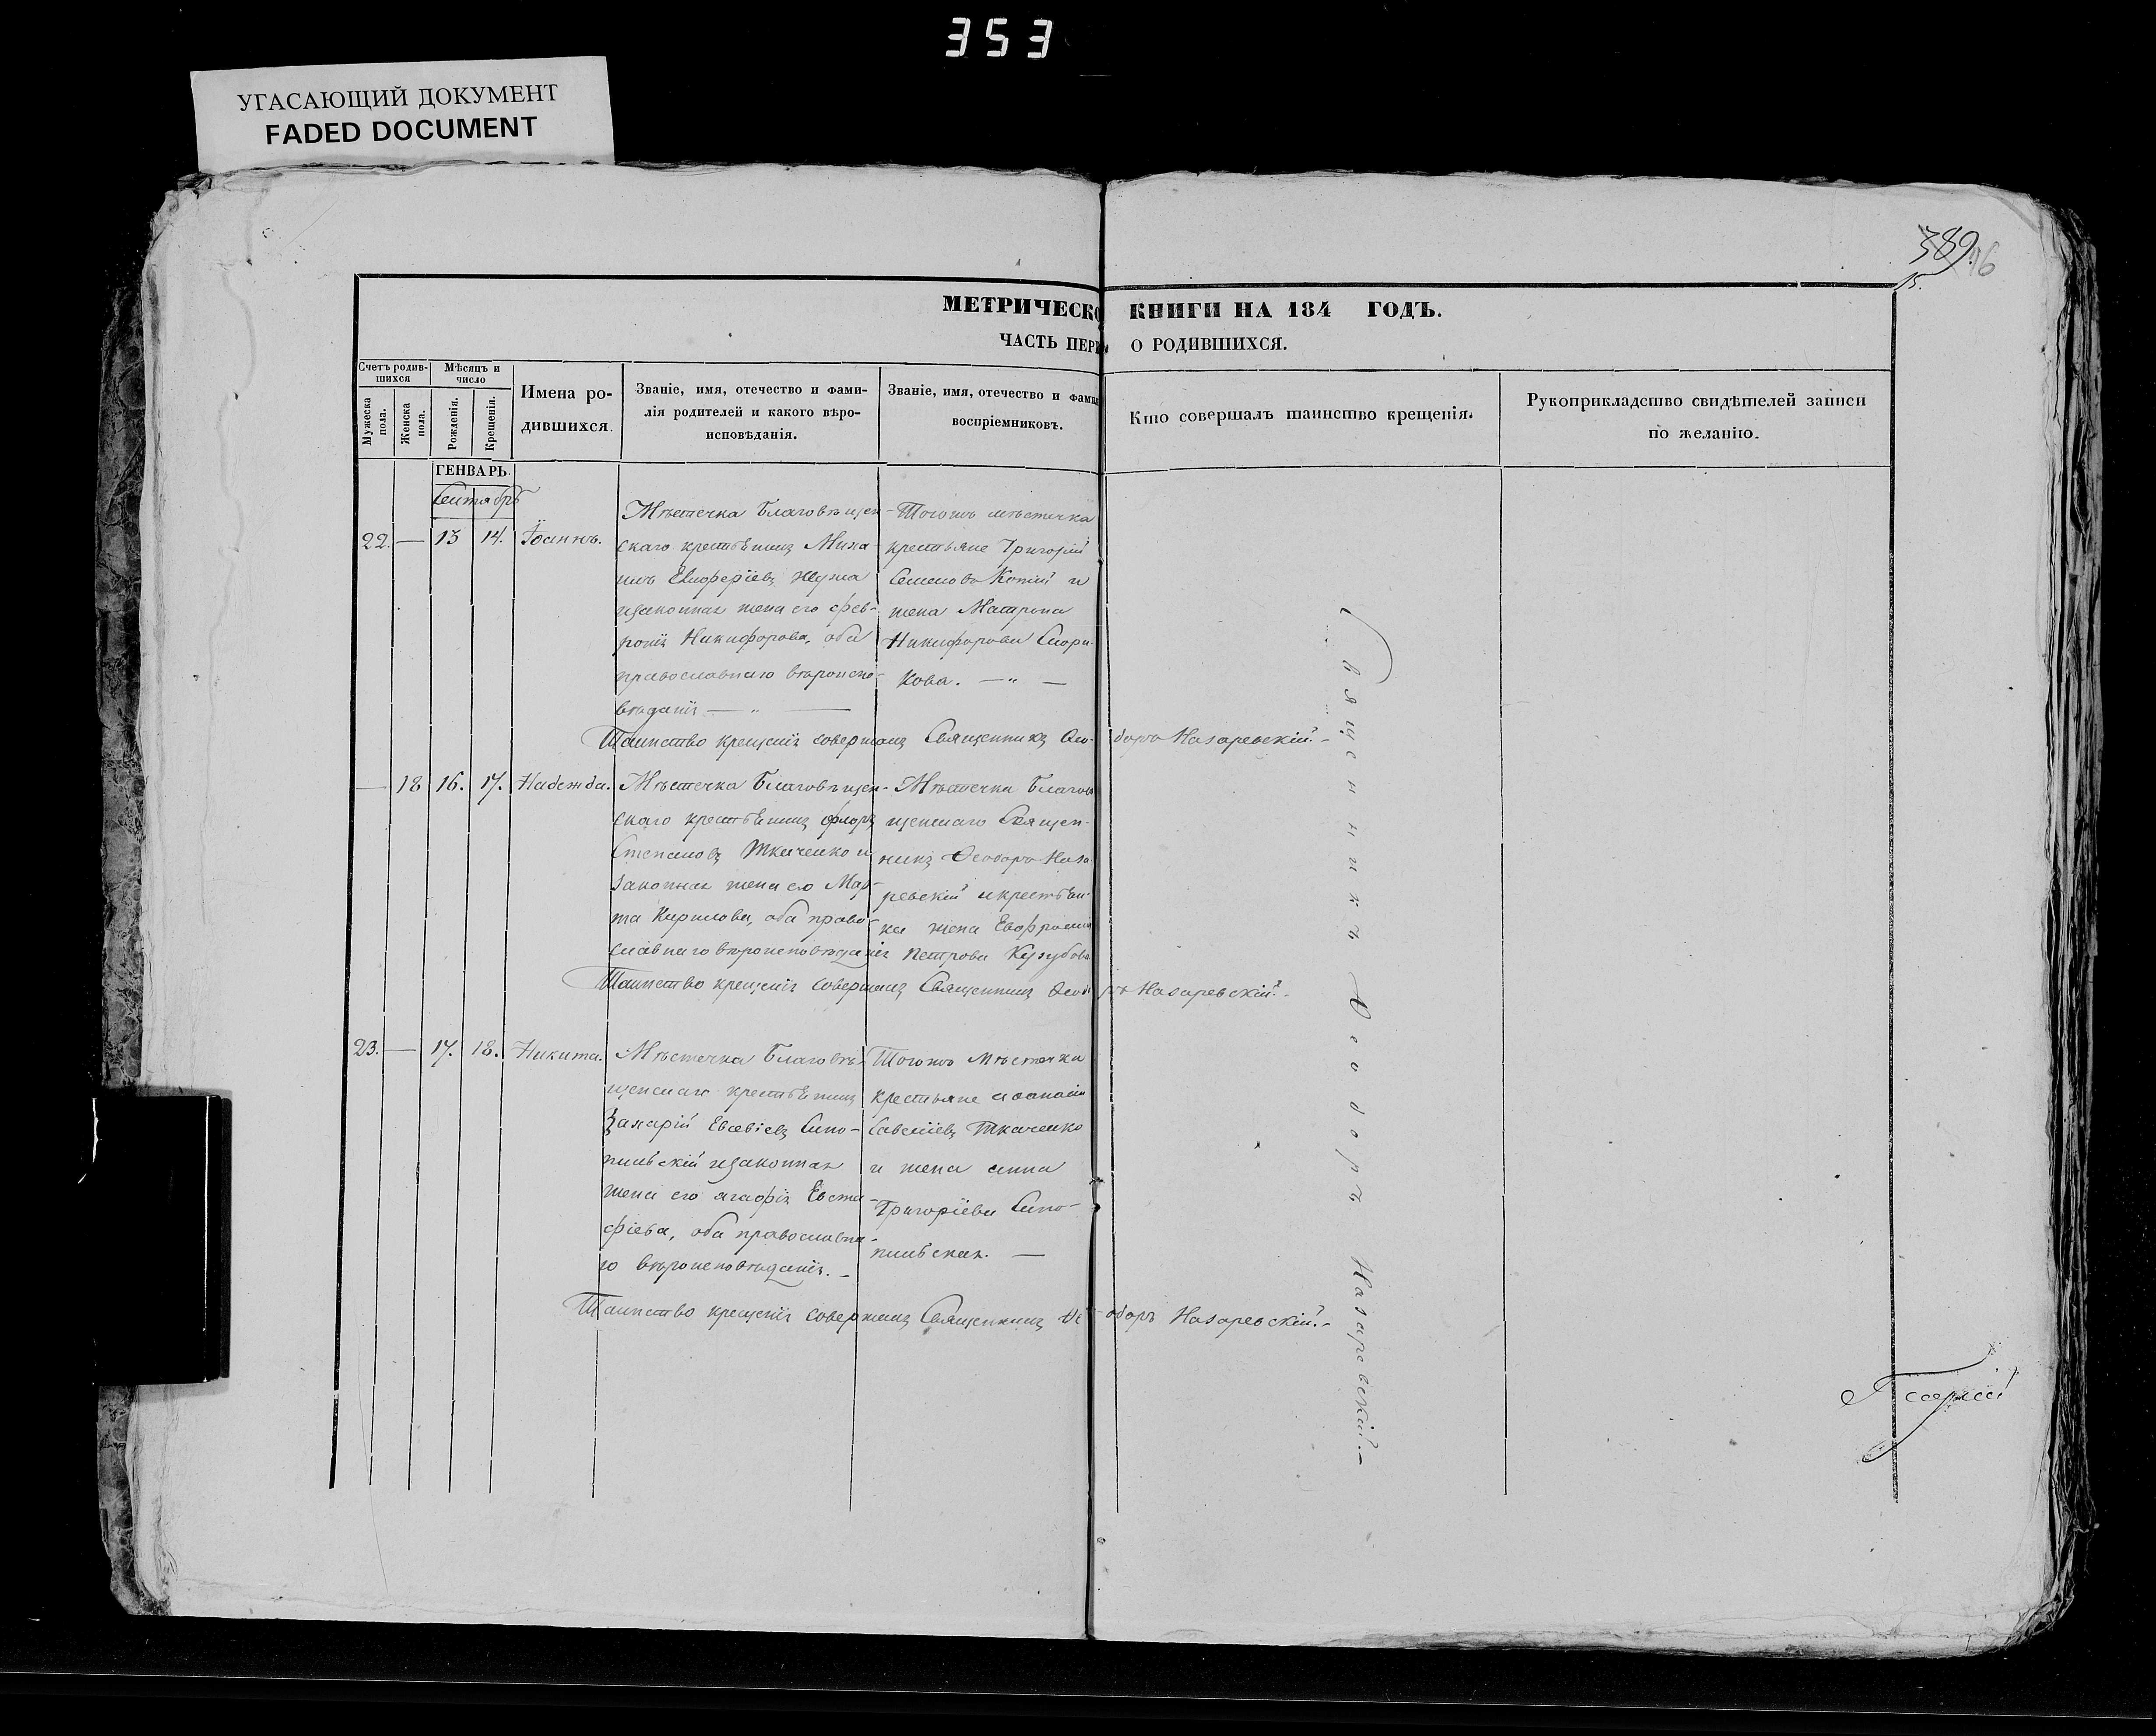 353
УГАСАЮЩИЙ ДОКУМЕНТ
FADED DOCUMENT
389.
16
15.
МЕТРИЧЕСКО КНИГИ НА 184 ГОДЪ.
ЧАСТЬ ПЕРВ О РОДИВШИХСЯ.
Счетъ родив-
шихся
Мужеска
пола.
Женска
пола.
Мѣсяцъ и
число
Рожденія.
Крещенія.
Имена ро-
дившихся.
Званіе, имя, отечество и фами-
лія родителей и какого вѣро-
исповѣданія.
Званіе, имя, отечество и фами
воспріемниковъ.
Кто совершалъ таинство крещенія.
Рукоприкладство свидѣтелей записи
по желанію.
ГЕНВАРЬ.
Сентябрь
22. — 13 14. Іоаннъ.
Мѣстечка Благовѣщен-
скаго крестьянинъ Миха
илъ Елиферіевъ
изаконная жена его Фев-
ронія Никифорова, оба
православнаго вѣроиспо-
вѣданія — " —
Тогожъ мѣстечка
крестьяне Григорій
Семеновъ и
жена Матрона
Никифорова
кова. — " —
Таинство крещенія совершалъ Священникъ Ѳео-доръ Назаревскій. -
— 18 16. 17. Надежда.
Мѣстечка Благовѣщен-
скаго крестьянинъ Флоръ
Степановъ Ткаченко и
законная жена его Мар-
та Кирилова, оба право-
славнаго вѣроисповѣданія
Мѣстечка Благов
щенскаго Священ-
никъ Ѳеодоръ Наза
ревскій и крестьян-
ка жена Евфросинія
Петрова
Таинство крещенія совершалъ Священникъ Ѳеодоръ Назаревскій. -
23. — 17. 18. Никита.
Мѣстечка Благовѣ-
щенскаго крестьянинъ
Захарій Евсевіевъ Сино-
пильскій изаконная
жена его Агафія Евста-
фіева, оба православна-
го вѣроисповѣданія. -
Тогожъ Мѣстечка
крестьяне Аѳанасій
Савеліевъ Ткаченко
и жена Анна
Григоріева Сино-
пильская. —
Таинство крещенія совершалъ Священникъ Ѳеодоръ Назаревскій. -
Священникъ Ѳеодоръ Назаревскій. -